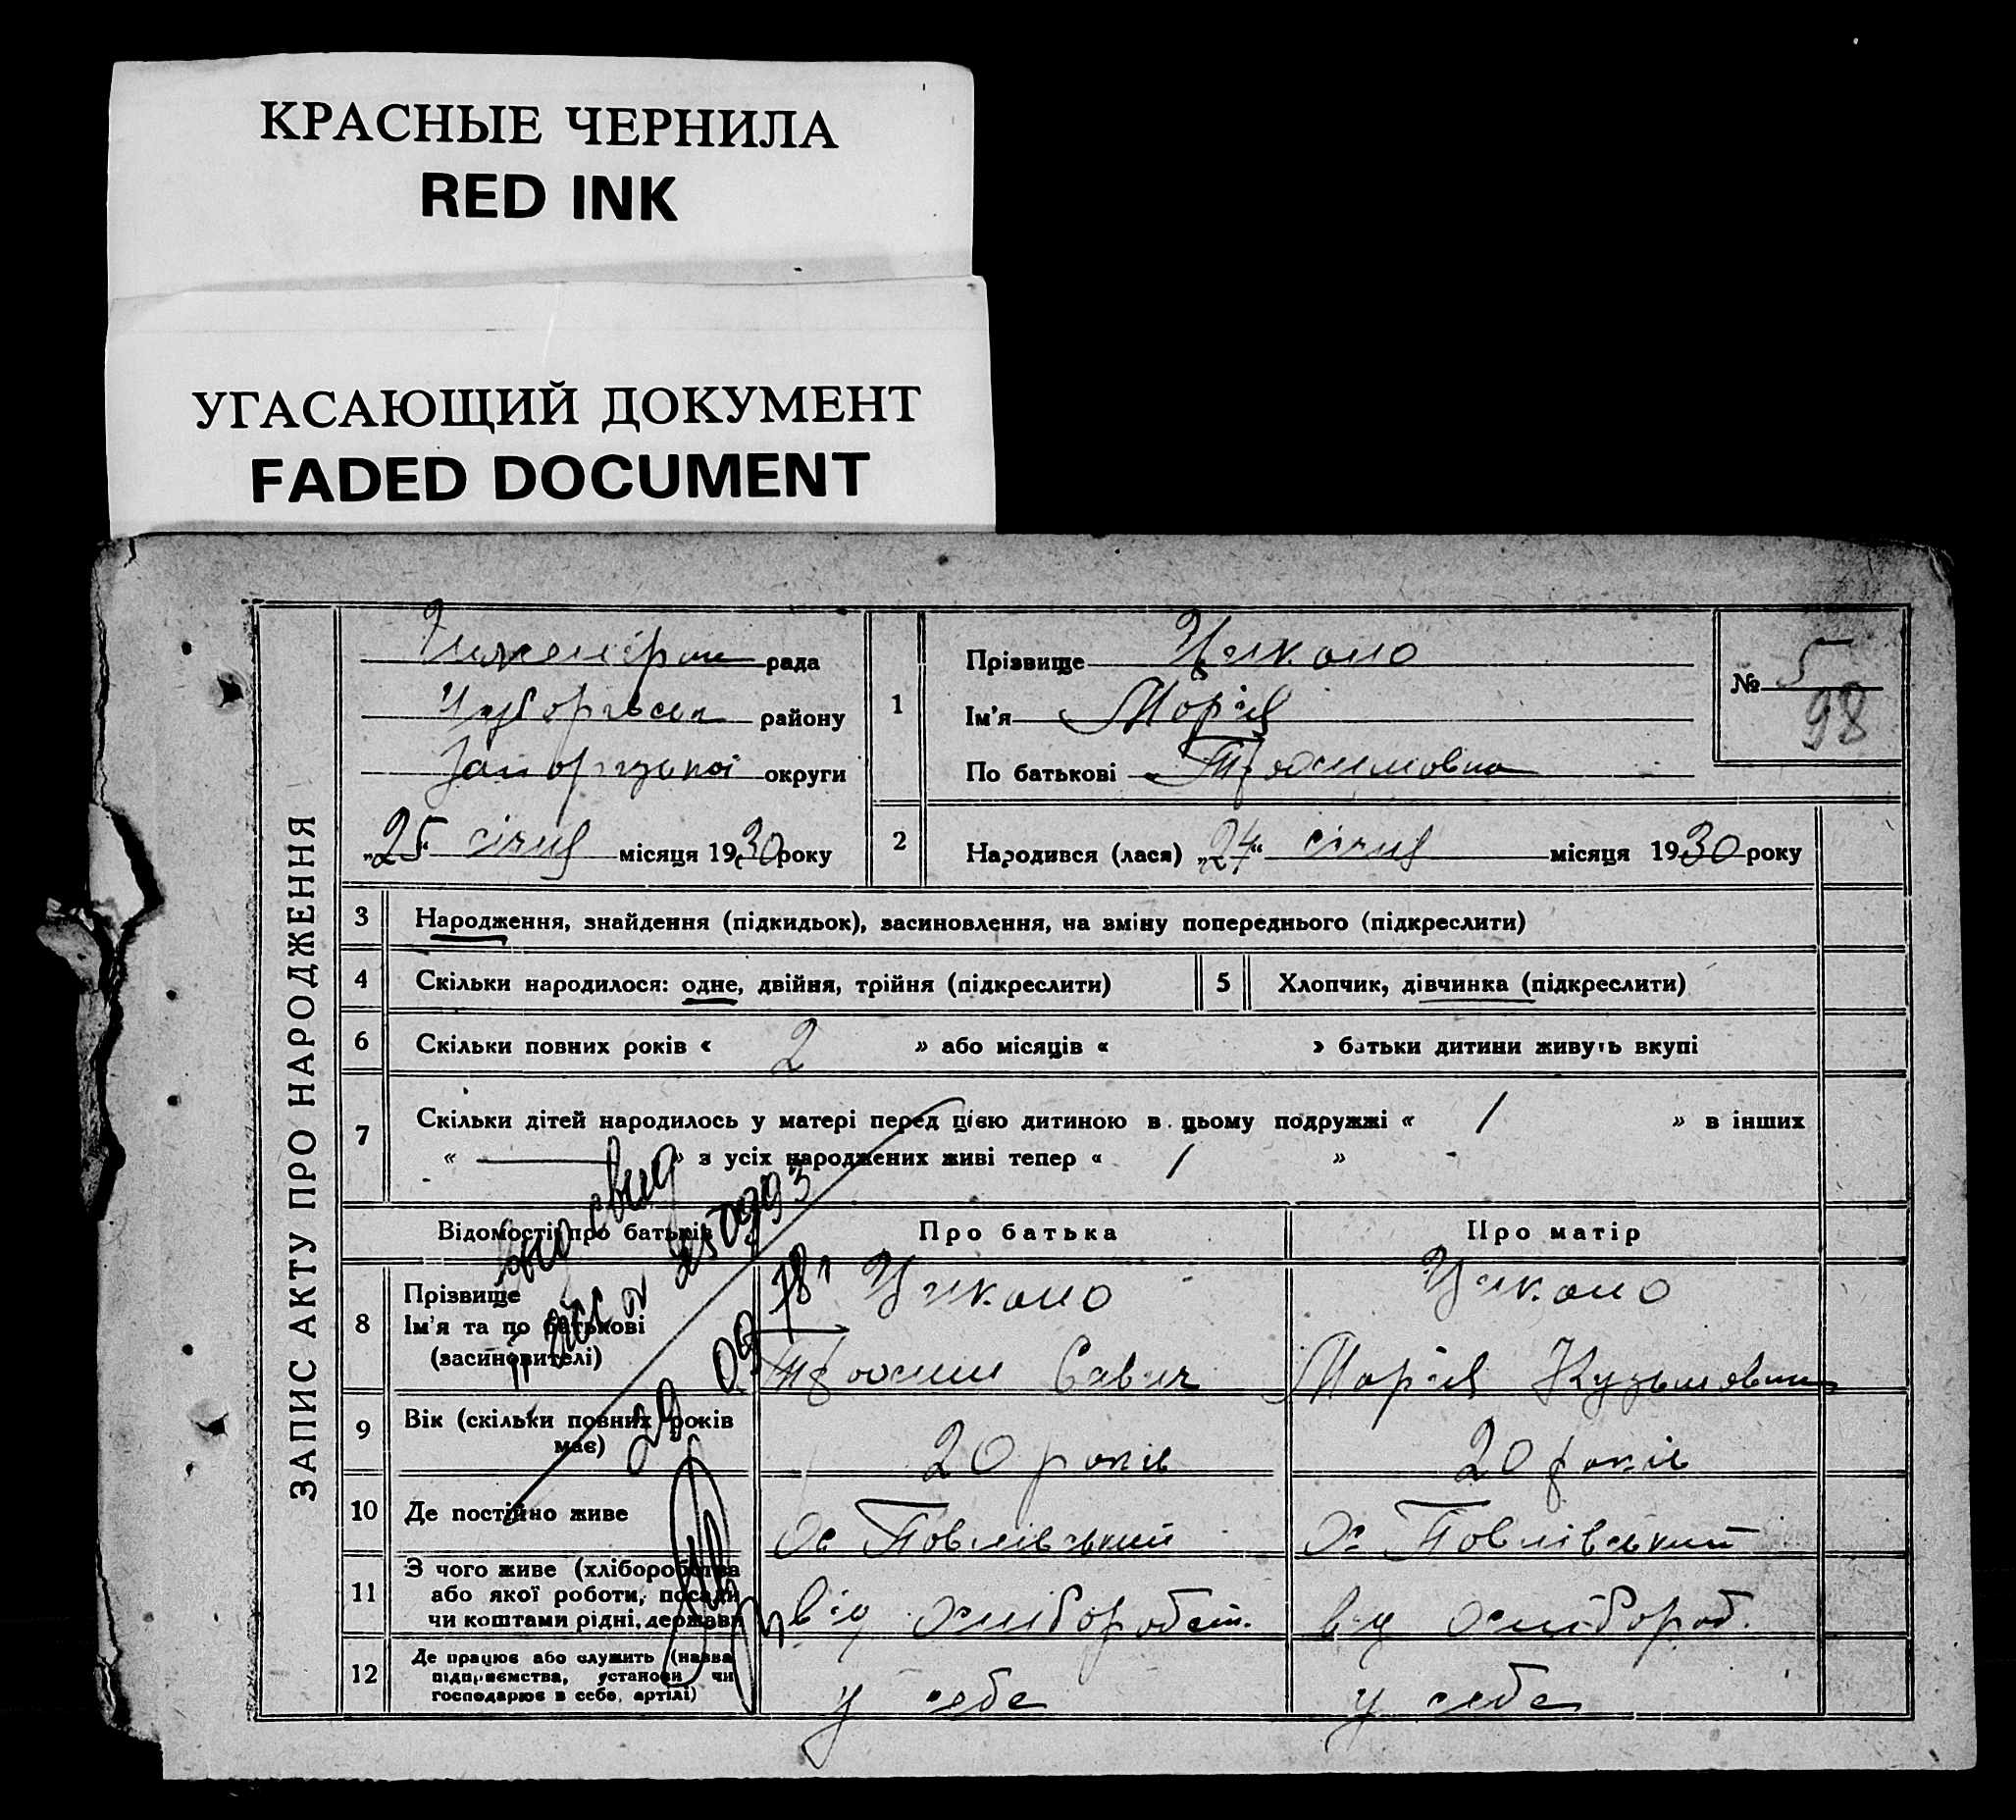 КРАСНЫЕ ЧЕРНИЛА
RED INK
УГАСАЮЩИЙ ДОКУМЕНТ
FADED DOCUMENT
ЗАПИС АКТУ ПРО НАРОДЖЕННЯ
рада
району
округи
„25“ січня місяця 1930 року
1
Прізвище Цикало
Ім'я Марія
По батькові Трохимовна
№ 5
98
2
Народився (лася) „24“ січня місяця 1930 року
3 Народження, знайдення (підкидьок), засиновлення, на зміну попереднього (підкреслити)
4 Скільки народилося: одне, двійня, трійня (підкреслити)
5 Хлопчик, дівчинка (підкреслити)
6 Скільки повних років « 2 » або місяців « » батьки дитини живуть вкупі
7 Скільки дітей народилось у матері перед цією дитиною в цьому подружжі « 1 » в інших
« — » з усіх народжених живі тепер « 1 »
Відомості про батьків Про батька Про матір
8 Прізвище Цикало Цикало
Ім'я та по батькові
(засиновителі) Трохим Савич Марія Кузьмовна
9 Вік (скільки повних років
має) 20 років 20 років
10 Де постійно живе Павлівський Павлівський
11 З чого живе (хліборобства
або якої роботи, посади
чи коштами рідні, держави від хліборобст. від хлібороб.
12 Де працює або служить (назва
підприємства, установи чи
господарює в себе, артілі) у себе у себе